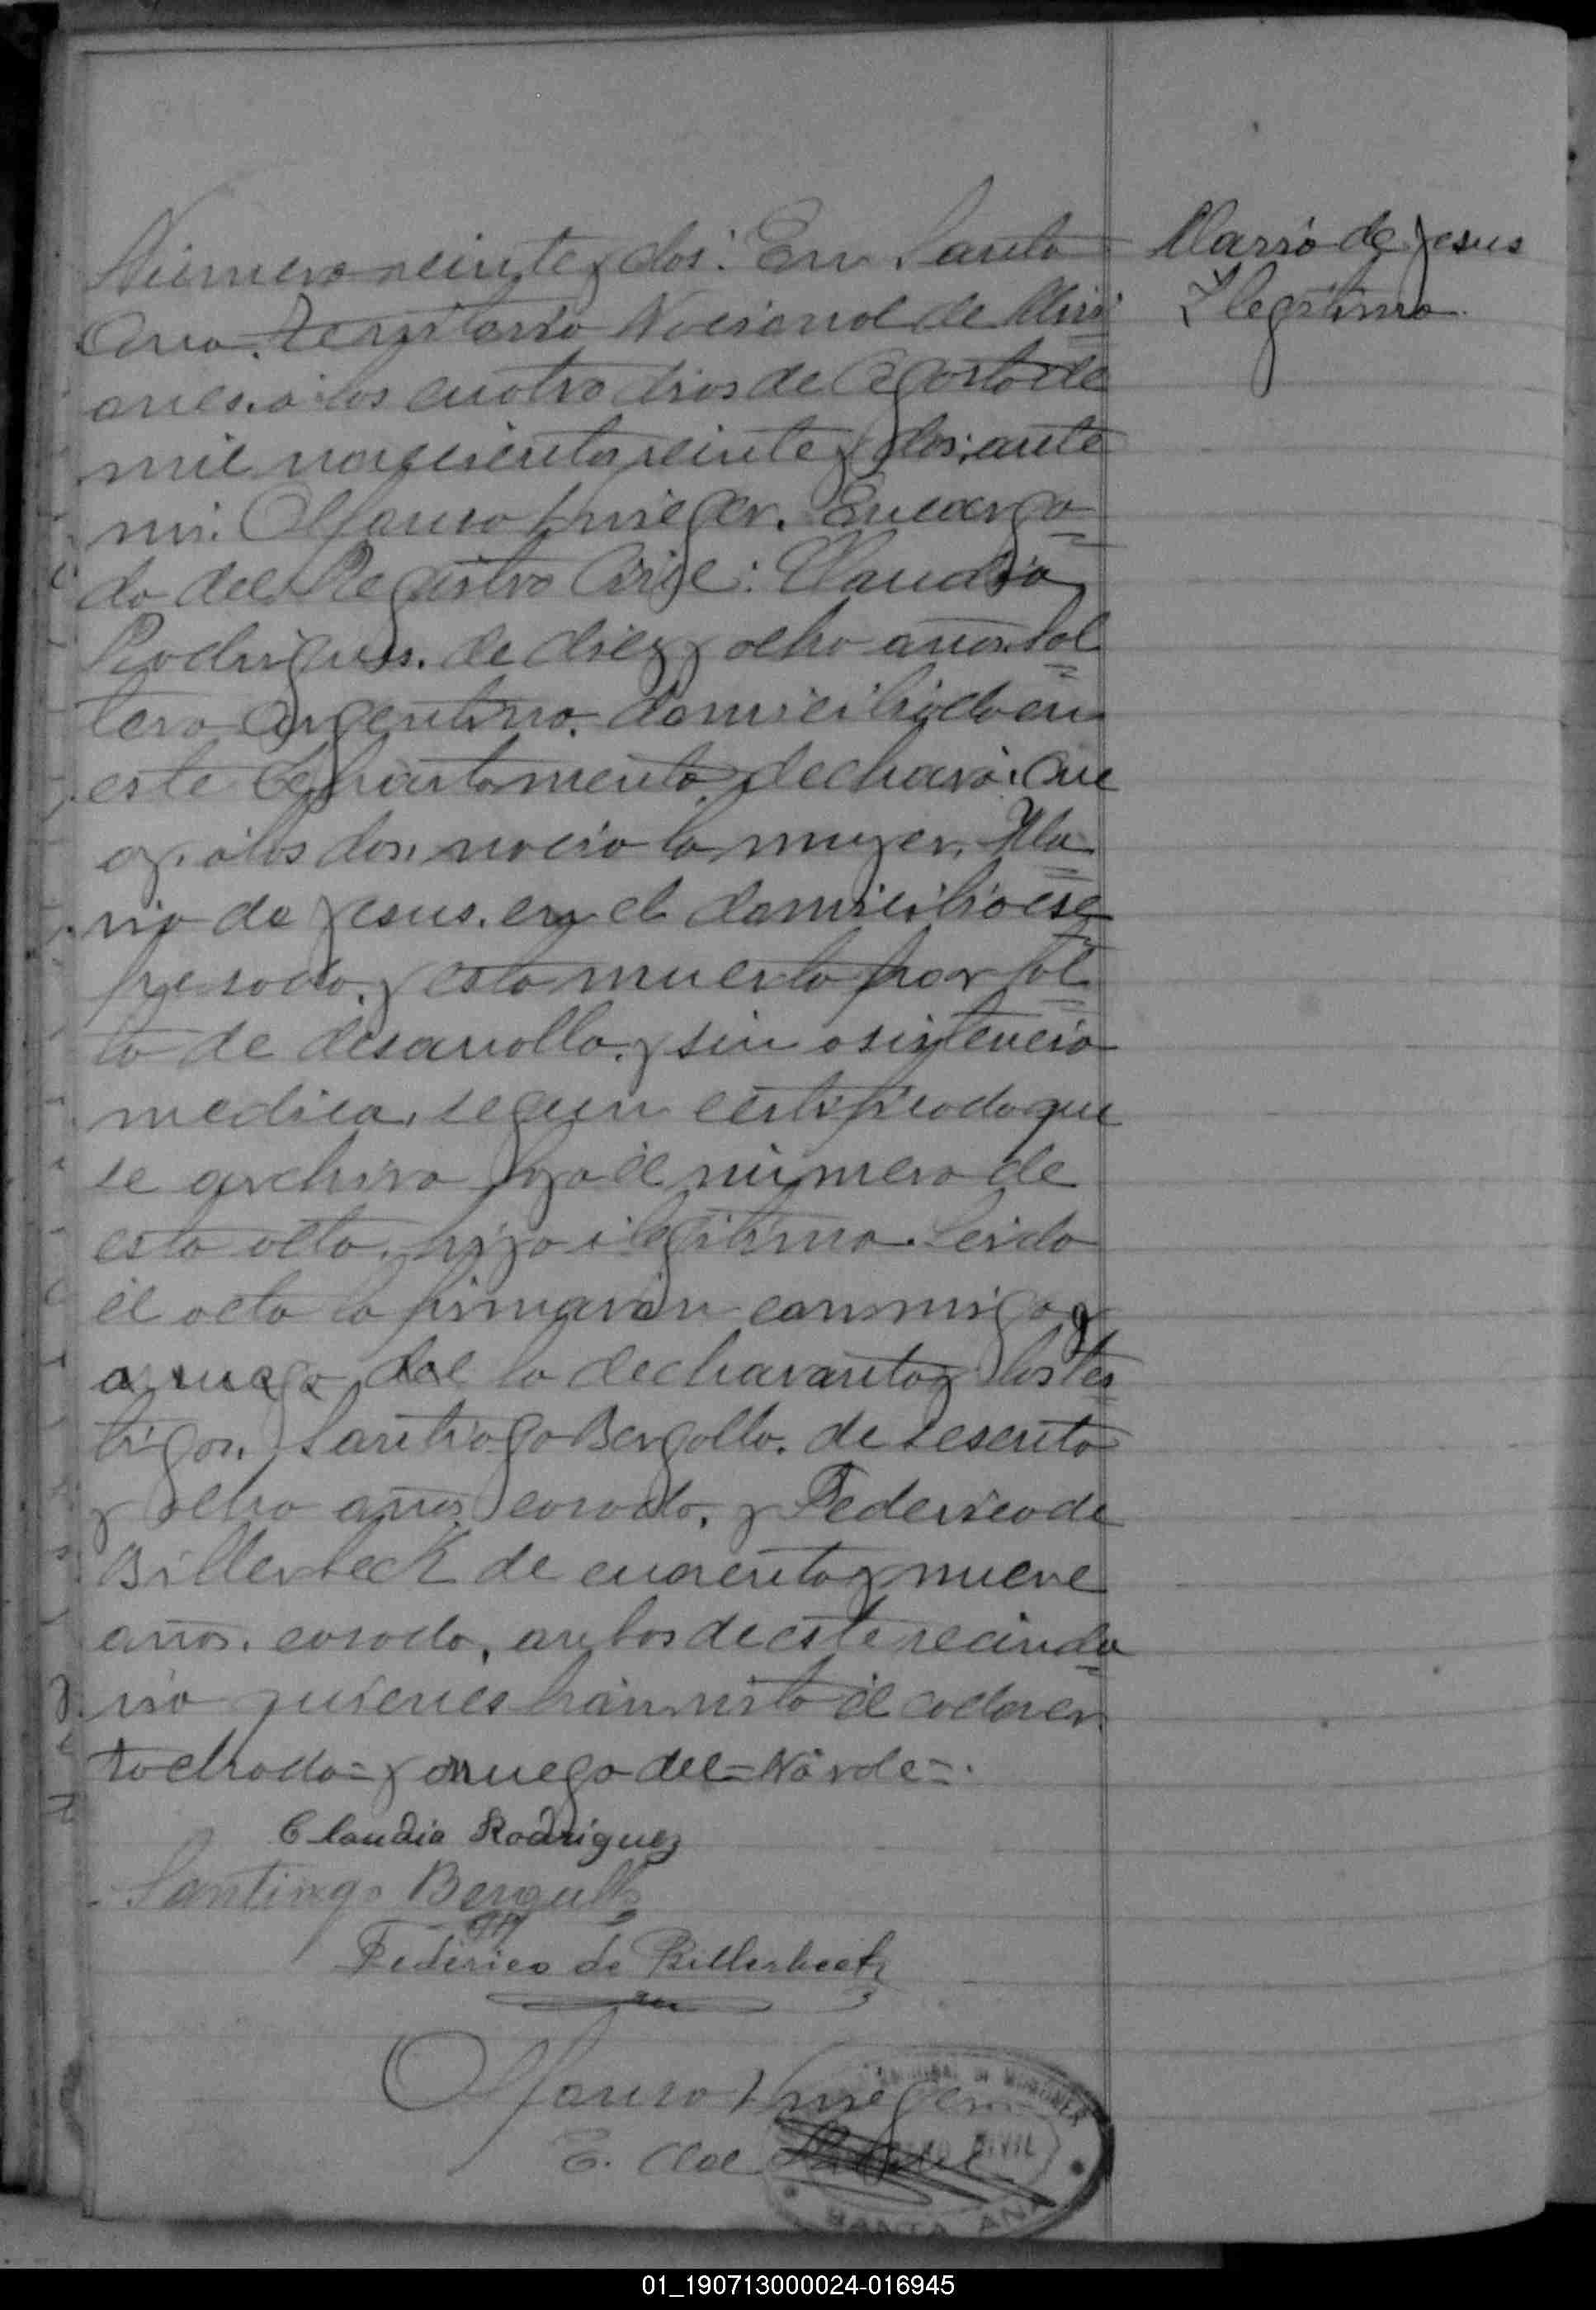 Número veinte y dos: En Santa
Ana. Territorio Nacional de Misi
ones. a los cuatro dias de Agosto de
mil novecientos veinte y dos, ante
mi. Encarga
do del Registro Civil: Claudia
Rodrigues. de diez y ocho años. sol
tera Argentina. domiciliada en
este departamento, declaró: Que
oy. a las dos, nacio la mujer, Ma
ria de Jesus. en el domicilio ese
presado, y esta muerta por fal
ta de desarrollo. y sin asistencia
medica, segun certificado que
se archiva bajo el número de
esta acta, hija ilegitima. Leida
el acta la firmaron conmigo y
a ruego del la declarante y los tes
tigos, Santiago Bergallo. de sesenta
y ocho años, casado, y Federico de
Billerbeck de cuarenta y nueve
años. casado, ambos de este vecinda
rio quienes han visto el cadaver.
tachado = y a ruego del = No vale =.
Claudia Rodriguez
Santiago Bergallo
Federico de Billerbeck
E. del
REGISTRO CIVIL
SANTA ANA
Maria de Jesus
Ilegitima.
01_190713000024-016945